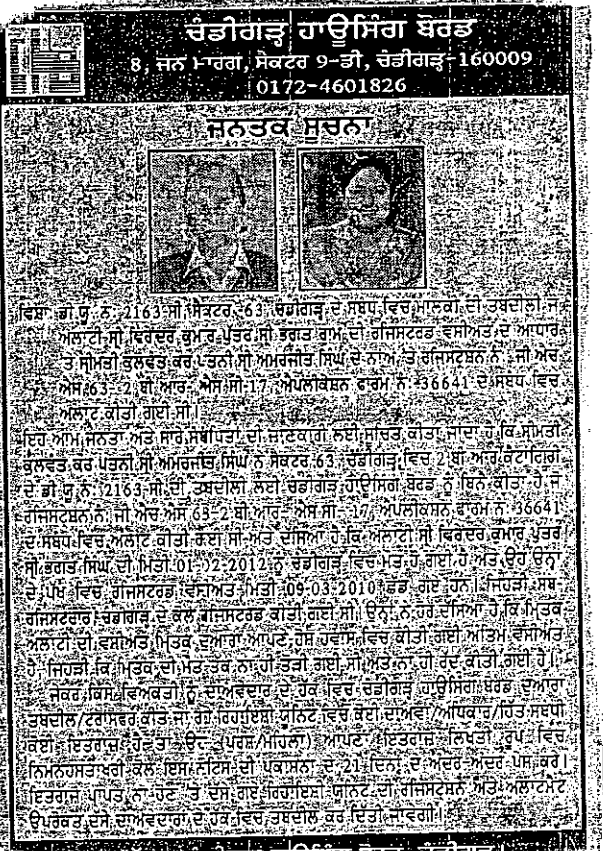 ਚੰਡੀਗੜ੍ਹ ਹਾਊਸਿੰਗ ਬੋਰਡ
8, ਜਨ ਮਾਰਗ, ਸੈਕਟਰ 9-ਡੀ, ਚੰਡੀਗੜ੍ਹ-160009
0172-4601826
ਜਨਤਕ ਸੂਚਨਾ
ਵਿਸ਼ਾ ਡੀ.ਯੂ.ਨੰ. 2163-ਸੀ ਸੈਕਟਰ-63 ਚੰਡੀਗੜ੍ਹ ਦੇ ਸਬੰਧ ਵਿਚ ਮਾਲਕੀ ਦੀ ਤਬਦੀਲੀ ਜੋ
ਅਲਾਟੀ ਸ੍ਰੀ ਵਿਰੇਂਦਰ ਕੁਮਾਰ ਪੁੱਤਰ ਸ੍ਰੀ ਭਗਤ ਰਾਮ ਦੀ ਰਜਿਸਟਰਡ ਵਸੀਅਤ ਦੇ ਆਧਾਰ
ਤੇ ਸ੍ਰੀਮਤੀ ਕੁਲਵੰਤ ਕੌਰ ਪਤਨੀ ਸ੍ਰੀ ਅਮਰਜੀਤ ਸਿੰਘ ਦੇ ਨਾਮ ਤੇ ਰਜਿਸਟ੍ਰੇਸ਼ਨ ਨੰ. ਜੀ ਐਚ
ਐਸ 63-2 ਬੀ ਆਰ- ਐਸ ਸੀ-17, ਅਪਲੀਕੇਸ਼ਨ ਫਾਰਮ ਨੰ. 36641 ਦੇ ਸਬੰਧ ਵਿਚ
ਅਲਾਟ ਕੀਤੀ ਗਈ ਸੀ।
ਇਹ ਆਮ ਜਨਤਾ ਅਤੇ ਸਾਰੇ ਸਬੰਧਿਤਾਂ ਦੀ ਜਾਣਕਾਰੀ ਲਈ ਸੂਚਿਤ ਕੀਤਾ ਜਾਂਦਾ ਹੈ ਕਿ ਸ੍ਰੀਮਤੀ
ਕੁਲਵੰਤ ਕੌਰ ਪਤਨੀ ਸ੍ਰੀ ਅਮਰਜੀਤ ਸਿੰਘ ਨੇ ਸੈਕਟਰ 63, ਚੰਡੀਗੜ੍ਹ ਵਿਚ 2 ਬੀ ਆਰ ਕੈਟਾਗਿਰੀ
ਦੇ ਡੀ.ਯੂ.ਨੰ. 2163-ਸੀ ਦੀ ਤਬਦੀਲੀ ਲਈ ਚੰਡੀਗੜ੍ਹ ਹਾਊਸਿੰਗ ਬੋਰਡ ਨੂੰ ਬਿਨੈ ਕੀਤਾ ਹੈ ਜੋ
ਰਜਿਸਟ੍ਰੇਸ਼ਨ ਨੰ. ਜੀ ਐਚ ਐਸ 63-2 ਬੀ ਆਰ- ਐਸ ਸੀ- 17, ਅਪਲੀਕੇਸ਼ਨ ਫਾਰਮ ਨੰ. 36641
ਦੇ ਸਬੰਧ ਵਿਚ ਅਲਾਟ ਕੀਤੀ ਗਈ ਸੀ ਅਤੇ ਦੱਸਿਆ ਹੈ ਕਿ ਅਲਾਟੀ ਸ੍ਰੀ ਵਿਰੇਂਦਰ ਕੁਮਾਰ ਪੁੱਤਰ
ਸ੍ਰੀ ਭਗਤ ਸਿੰਘ ਦੀ ਮਿਤੀ 01-02-2012 ਨੂੰ ਚੰਡੀਗੜ੍ਹ ਵਿਚ ਮੌਤ ਹੋ ਗਈ ਹੈ ਅਤੇ ਉਹ ਉਨ੍ਹਾਂ
ਦੇ ਪੱਖ ਵਿਚ ਰਜਿਸਟਰਡ ਵਸੀਅਤ ਮਿਤੀ 09-03-2010 ਛੱਡ ਗਏ ਹਨ। ਜਿਹੜੀ ਸਬ-
ਰਜਿਸਟਰਾਰ ਚੰਡੀਗੜ੍ਹ ਦੇ ਕੋਲ ਰਜਿਸਟਰਡ ਕੀਤੀ ਗਈ ਸੀ। ਉਨ੍ਹਾਂ ਨੇ ਹੋਰ ਦੱਸਿਆ ਹੈ ਕਿ ਮ੍ਰਿਤਕ
ਅਲਾਟੀ ਦੀ ਵਸੀਅਤ ਮ੍ਰਿਤਕ ਦੁਆਰਾ ਆਪਣੇ ਹੋਸ਼ ਹਵਾਸ ਵਿਚ ਕੀਤੀ ਗਈ ਅੰਤਿਮ ਵਸੀਅਤ
ਹੈ ਜਿਹੜੀ ਕਿ ਮ੍ਰਿਤਕ ਦੀ ਮੌਤ ਤਕ ਨਾ ਹੀ ਤੋੜੀ ਗਈ ਸੀ ਅਤੇ ਨਾ ਹੀ ਰੱਦ ਕੀਤੀ ਗਈ ਹੈ।
ਜੇਕਰ ਕਿਸੇ ਵਿਅਕਤੀ ਨੂੰ ਦਾਅਵੇਦਾਰ ਦੇ ਹੱਕ ਵਿਚ ਚੰਡੀਗੜ੍ਹ ਹਾਊਸਿੰਗ ਬੋਰਡ ਦੁਆਰਾ
ਤਬਦੀਲ/ਟਰਾਂਸਫਰ ਕੀਤੇ ਜਾ ਰਹੇ ਰਿਹਾਇਸ਼ੀ ਯੂਨਿਟ ਵਿਚ ਕੋਈ ਦਾਅਵਾ/ਅਧਿਕਾਰ/ਹਿੱਤ ਸਬੰਧੀ
ਕੋਈ ਇਤਰਾਜ਼ ਹੈ ਤਾਂ ਉਹ (ਪੁਰਸ਼/ਮਹਿਲਾ) ਆਪਣਾ ਇਤਰਾਜ਼ ਲਿਖਤੀ ਰੂਪ ਵਿਚ
ਨਿਮਨਹਸਤਾਖਰੀ ਕੋਲ ਇਸ ਨੋਟਿਸ ਦੀ ਪ੍ਰਕਾਸ਼ਨਾ ਦੇ 21 ਦਿਨਾਂ ਦੇ ਅੰਦਰ-ਅੰਦਰ ਪੇਸ਼ ਕਰੇ।
ਇਤਰਾਜ਼ ਪ੍ਰਾਪਤ ਨਾ ਹੋਣ ਤੇ ਦੱਸੇ ਗਏ ਰਿਹਾਇਸ਼ੀ ਯੂਨਿਟ ਦੀ ਰਜਿਸਟ੍ਰੇਸ਼ਨ ਅਤੇ ਅਲਾਟਮੈਂਟ
ਉਪਰੋਕਤ ਦੱਸੇ ਦਾਅਵੇਦਾਰਾਂ ਦੇ ਹੱਕ ਵਿਚ ਤਬਦੀਲ ਕਰ ਦਿੱਤੀ ਜਾਵੇਗੀ।